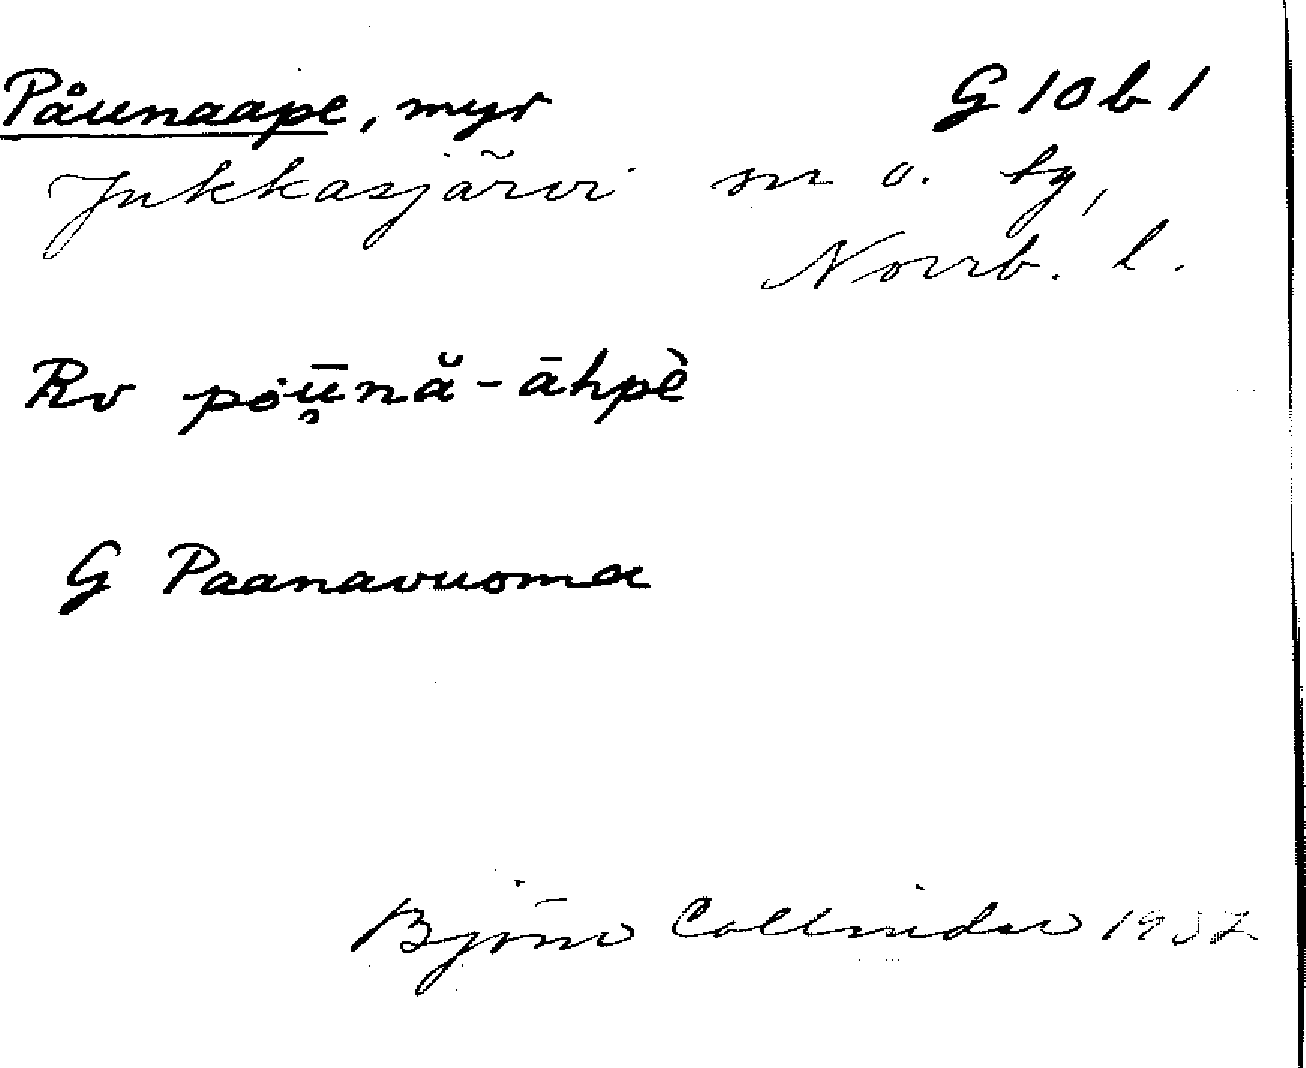 Påunaape, myr G 10 b 1
Jukkasjärvi sn o. tg,
Norrb. l.
Rv pȯū̯nă-āhpè
G Paanavuoma
Björn Collinder 1932